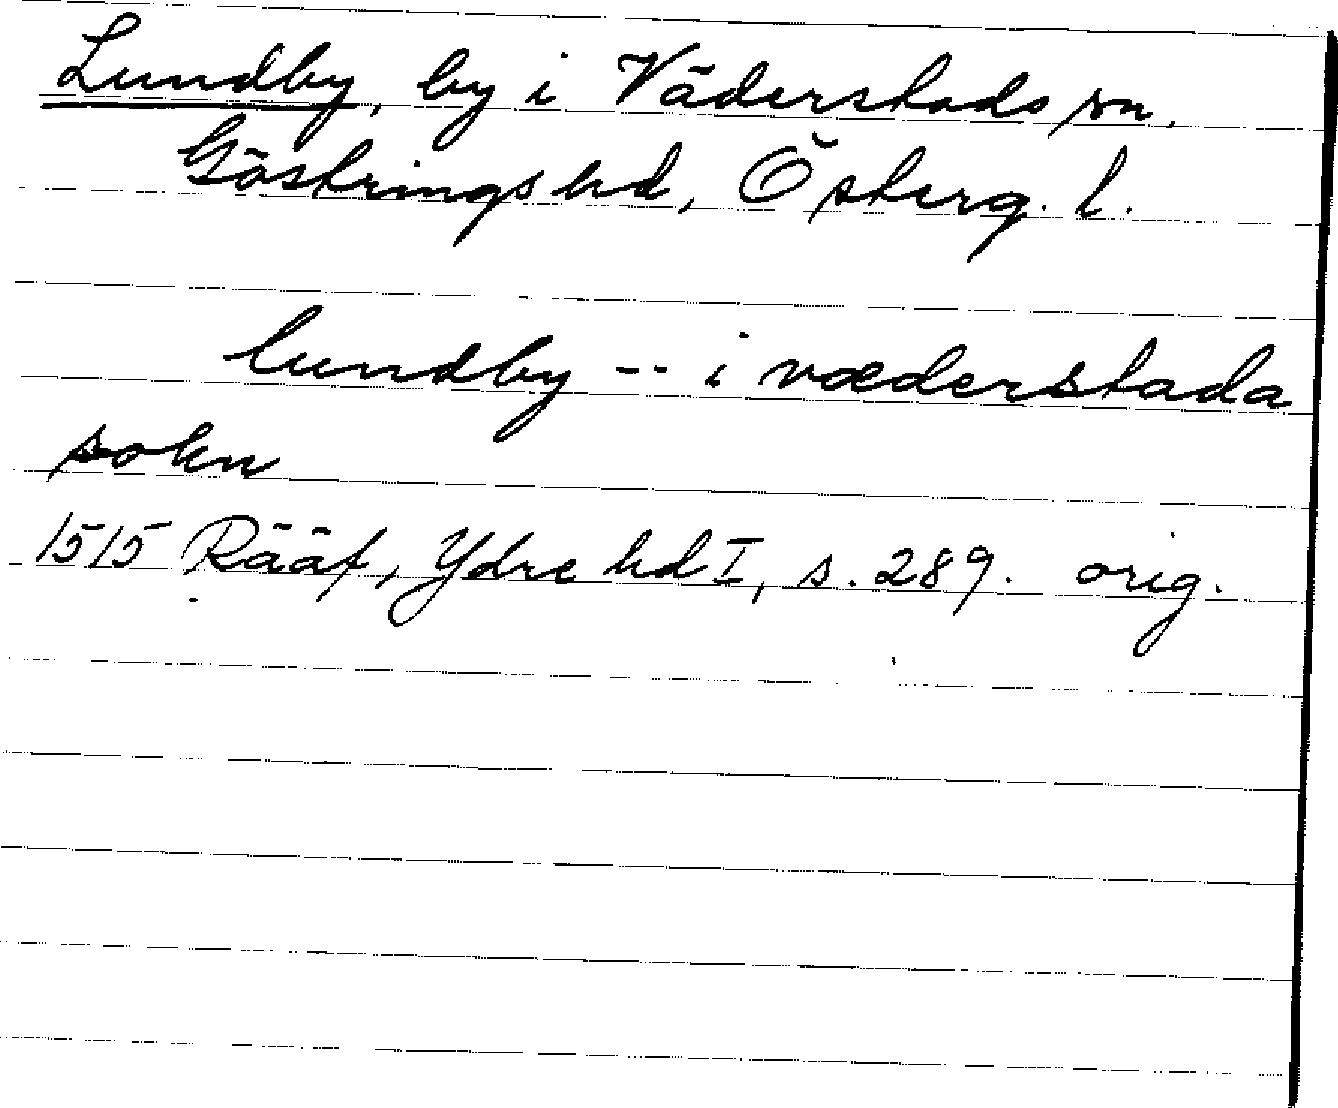 Lundby, by i Väderstads sn,
Göstrings hd, Österg. l.
lundby -- i væderstada
sokn
1515 Rääf, Ydre hd I, s. 289. orig.